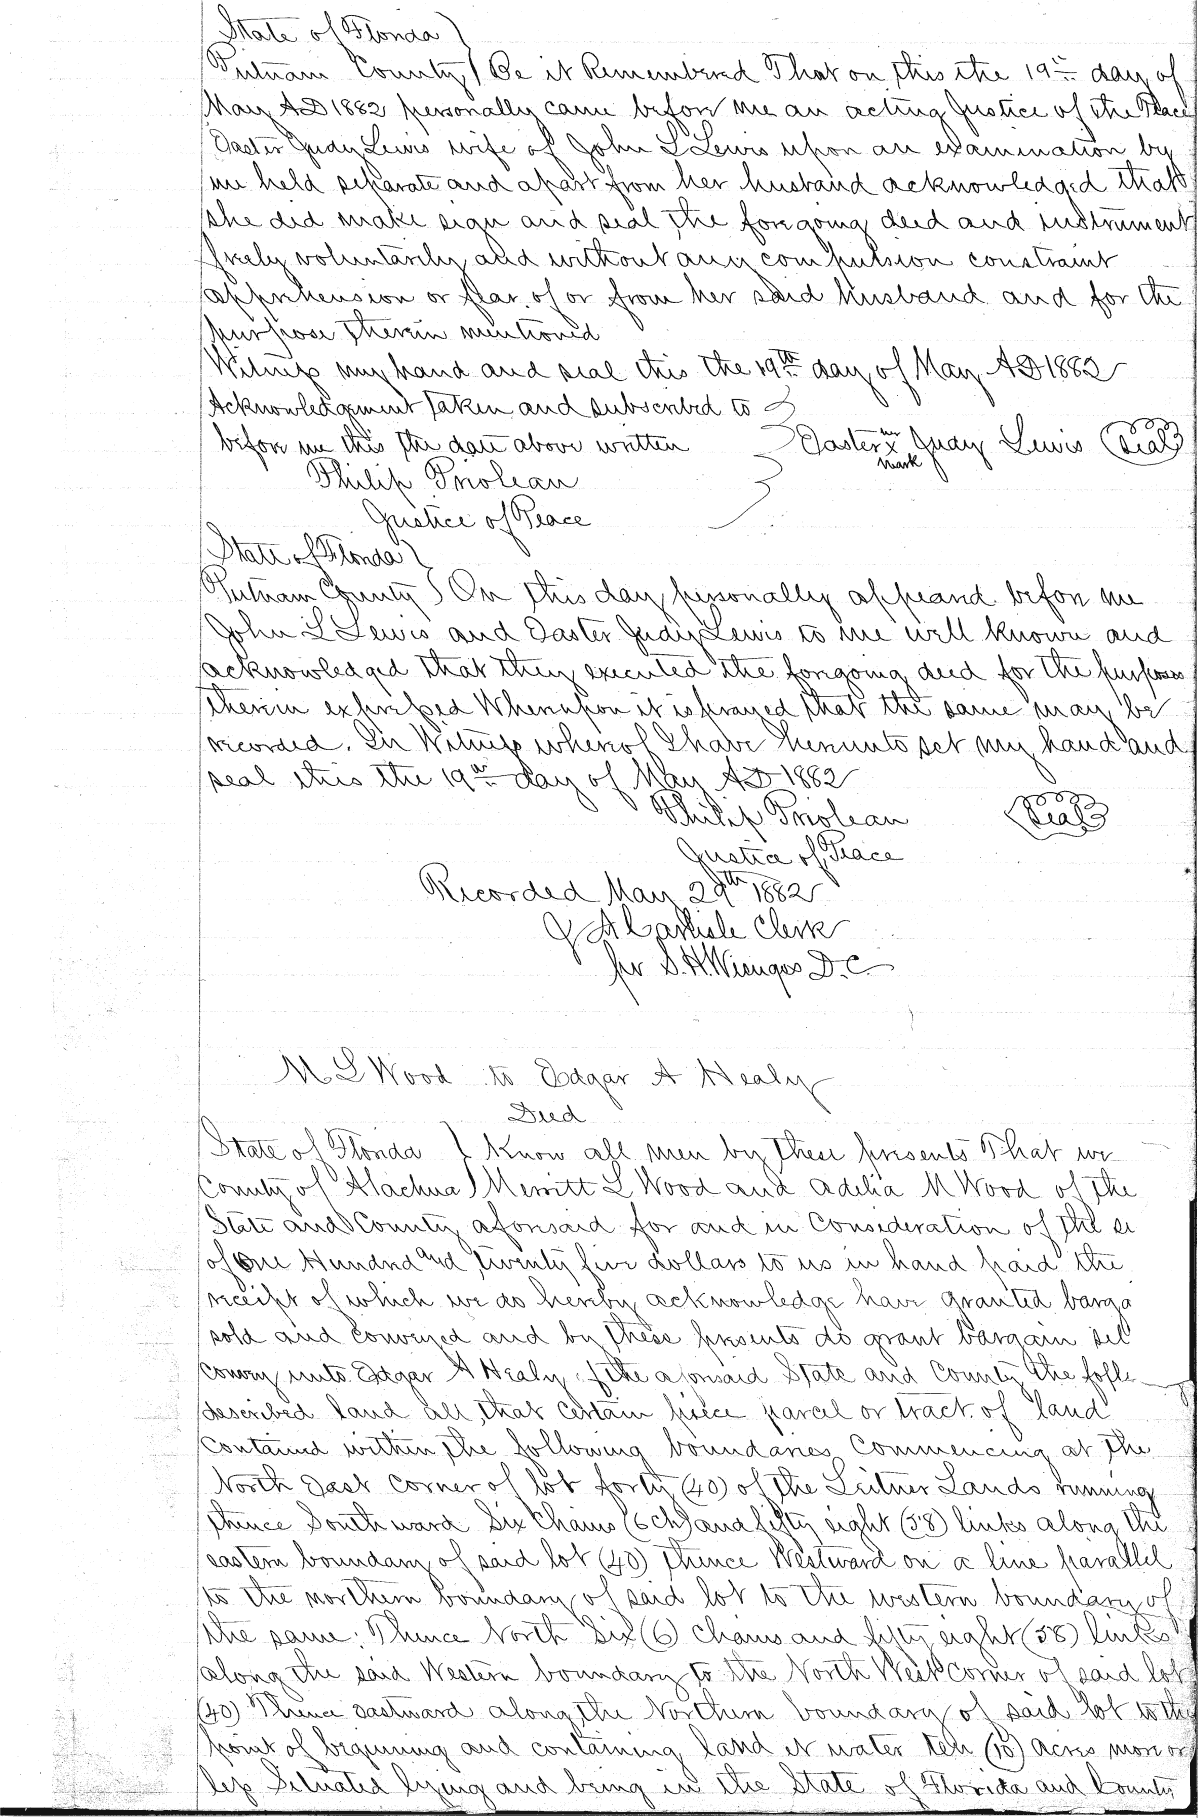 State of Florida }
Putnam County } Be it Remembered That on this the 19th day of
May AD 1882 personally came before me an acting Justice of the Peace
Easter Judy Lewis wife of John L Lewis upon an examination by
me held separate and apart from her husband acknowledged that
she did make sign and seal the foregoing deed and instrument
freely voluntarily and without any compulsion constraint
apprehension or fear of or from her said husband and for the
purpose therein mentioned
Witness my hand and seal this the 19th day of May AD 1882
Acknowledgment taken and subscribed to }
before me this the date above written } Easter her x mark Judy Lewis (Seal)
Philip Priolean
Justice of Peace
State of Florida }
Putnam County } On this day personally appeared before me
John L Lewis and Easter Judy Lewis to me well known and
acknowledged that they executed the foregoing deed for the purposes
therein expressed Whereupon it is prayed that the same may be
recorded. In Witness whereof I have hereunto set my hand and
seal this the 19th day of May AD 1882
Philip Priolean (Seal)
Justice of Peace
Recorded May 29th 1882
A Carlisle Clerk
per S. H. Wienges D.C.
M L Wood to Edgar A Healy
Deed
State of Florida } Know all men by these presents That we
County of Alachua } Merritt L Wood and Adelia M Wood of the
State and County aforesaid for and in Consideration of the
of One Hundred and twenty five dollars to us in hand paid the
receipt of which we do hereby acknowledge have granted barga
sold and conveyed and by these presents do grant bargain sel
convey unto Edgar A Healy of the aforesaid State and County the follo
described land all that certain piece parcel or tract of land
contained within the following boundaries Commencing at the
North East corner of lot forty (40) of the Leitner Lands running
thence Southward Six Chains (6 ch) and fifty eight (58) links along the
eastern boundary of said lot (40) Thence Westward on a line parallel
to the northern boundary of said lot to the western boundary of
the same; Thence North Six (6) chains and fifty eight (58) links
along the said Western boundary to the North West corner of said lot
(40) Thence eastward along the Northern boundary of said lot to the
point of beginning and containing land & water ten (10) acres more or
less Situated lying and being in the State of Florida and County